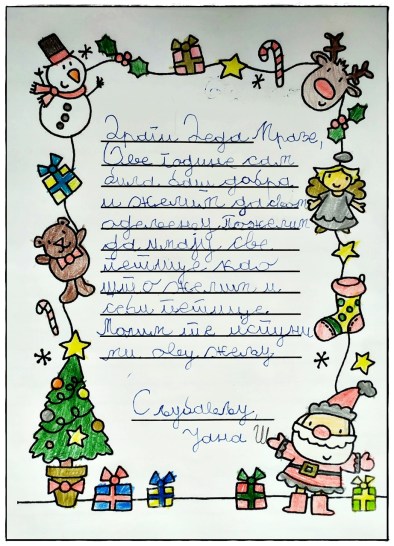 Драги Деда Мразе,
Ове године сам
била баш добра
и желим да свом
одељењу пожелим
да имају све
петице као
што желим и
себи петице.
Молим те испуни
ми ову жељу
С љубављу,
Јана Ш